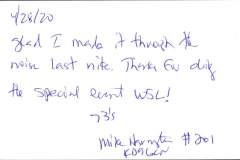 4/28/20
glad I made it through the
noise last nite. Thanks for doing
the special event WSL!
73's
Mike #201